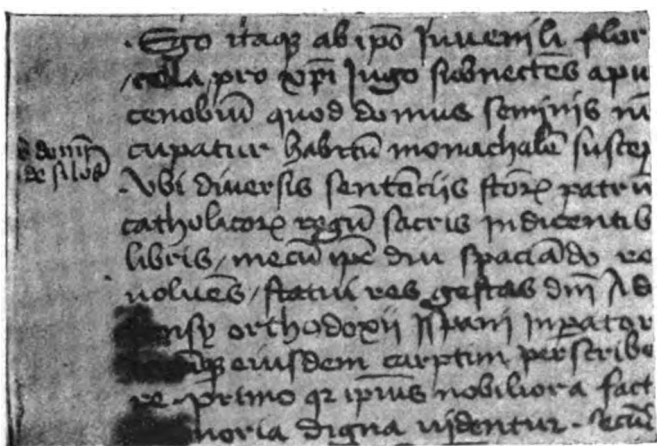 · Ego itaq ab ipō Juvenili flor
colla, pro xp̄i Jugo subnectēs apu
cenobiū quod domus seminis nū
cupatur habitū monachalē suscep
de silos
· Vbi diversis sentēciis stōꝝ patrū
catholicoꝝ regū sacris indicentib
libris, mecū ip̄e diu spaciādo re
voluēs, statui res gestas dn̄i Ad
orthodoxii yspani inperator
q eiusdem carptim perscribe
re · primo qꝛ ip̄ius nobiliora fact
moria digna videntur · secū